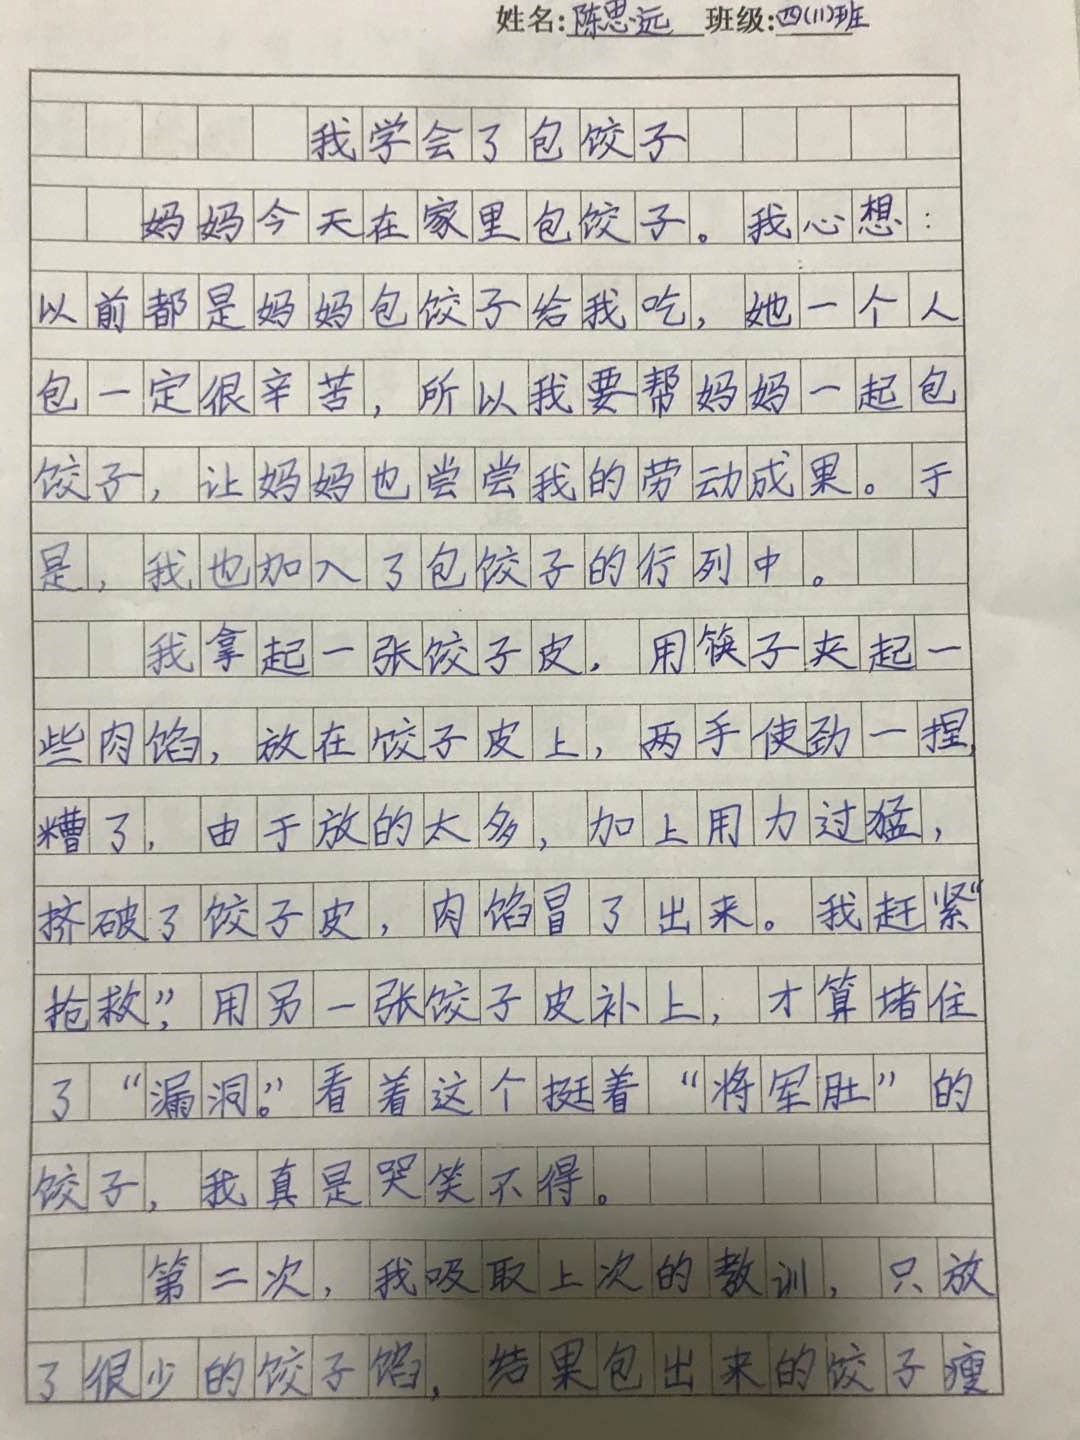 姓名:陈思远 班级:四(11)班
我学会了包饺子
妈妈今天在家里包饺子。我心想:
以前都是妈妈包饺子给我吃,她一个人
包一定很辛苦,所以我要帮妈妈一起包
饺子,让妈妈也尝尝我的劳动成果。于
是,我也加入了包饺子的行列中。
我拿起一张饺子皮,用筷子夹起一
些肉馅,放在饺子皮上,两手使劲一捏,
糟了,由于放的太多,加上用力过猛,
挤破了饺子皮,肉馅冒了出来。我赶紧“
抢救”,用另一张饺子皮补上,才算堵住
了“漏洞。”看着这个挺着“将军肚”的
饺子,我真是哭笑不得。
第二次,我吸取上次的教训,只放
了很少的饺子馅,结果包出来的饺子瘦